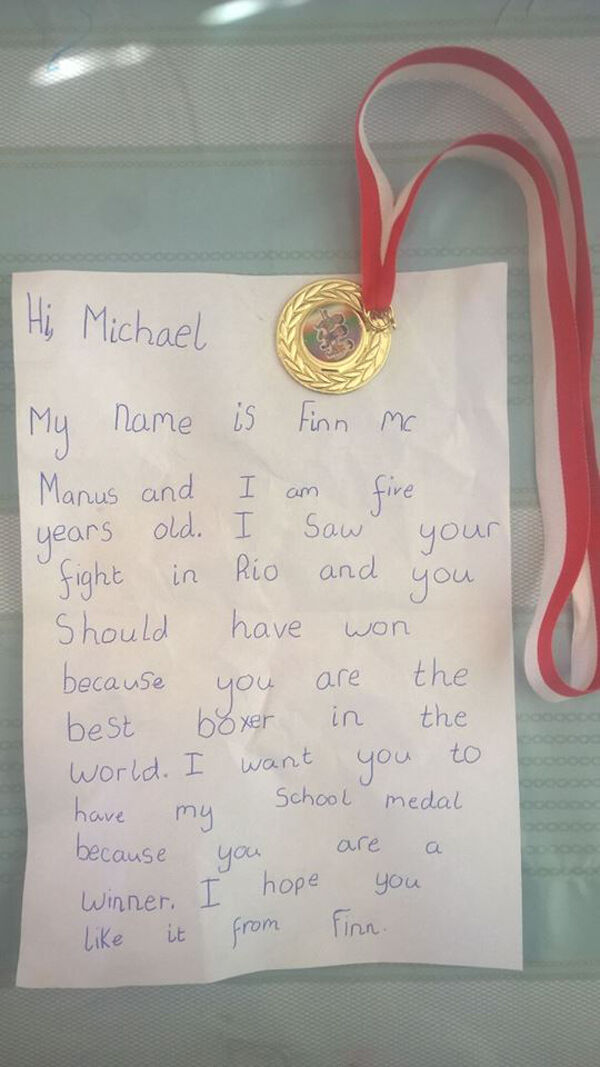 Hi, Michael
My name is Finn Mc
Manus and I am five
years old. I Saw your
fight in Rio and you
Should have won
because you are the
best boxer in the
world. I want you to
have my School medal
because you are a
winner. I hope you
like it from Finn.